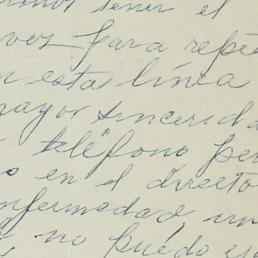 tener el
vez para repe
n esta línea
mayor sincerida
teléfono per
en el directo
nfermedad, un
no puedo es